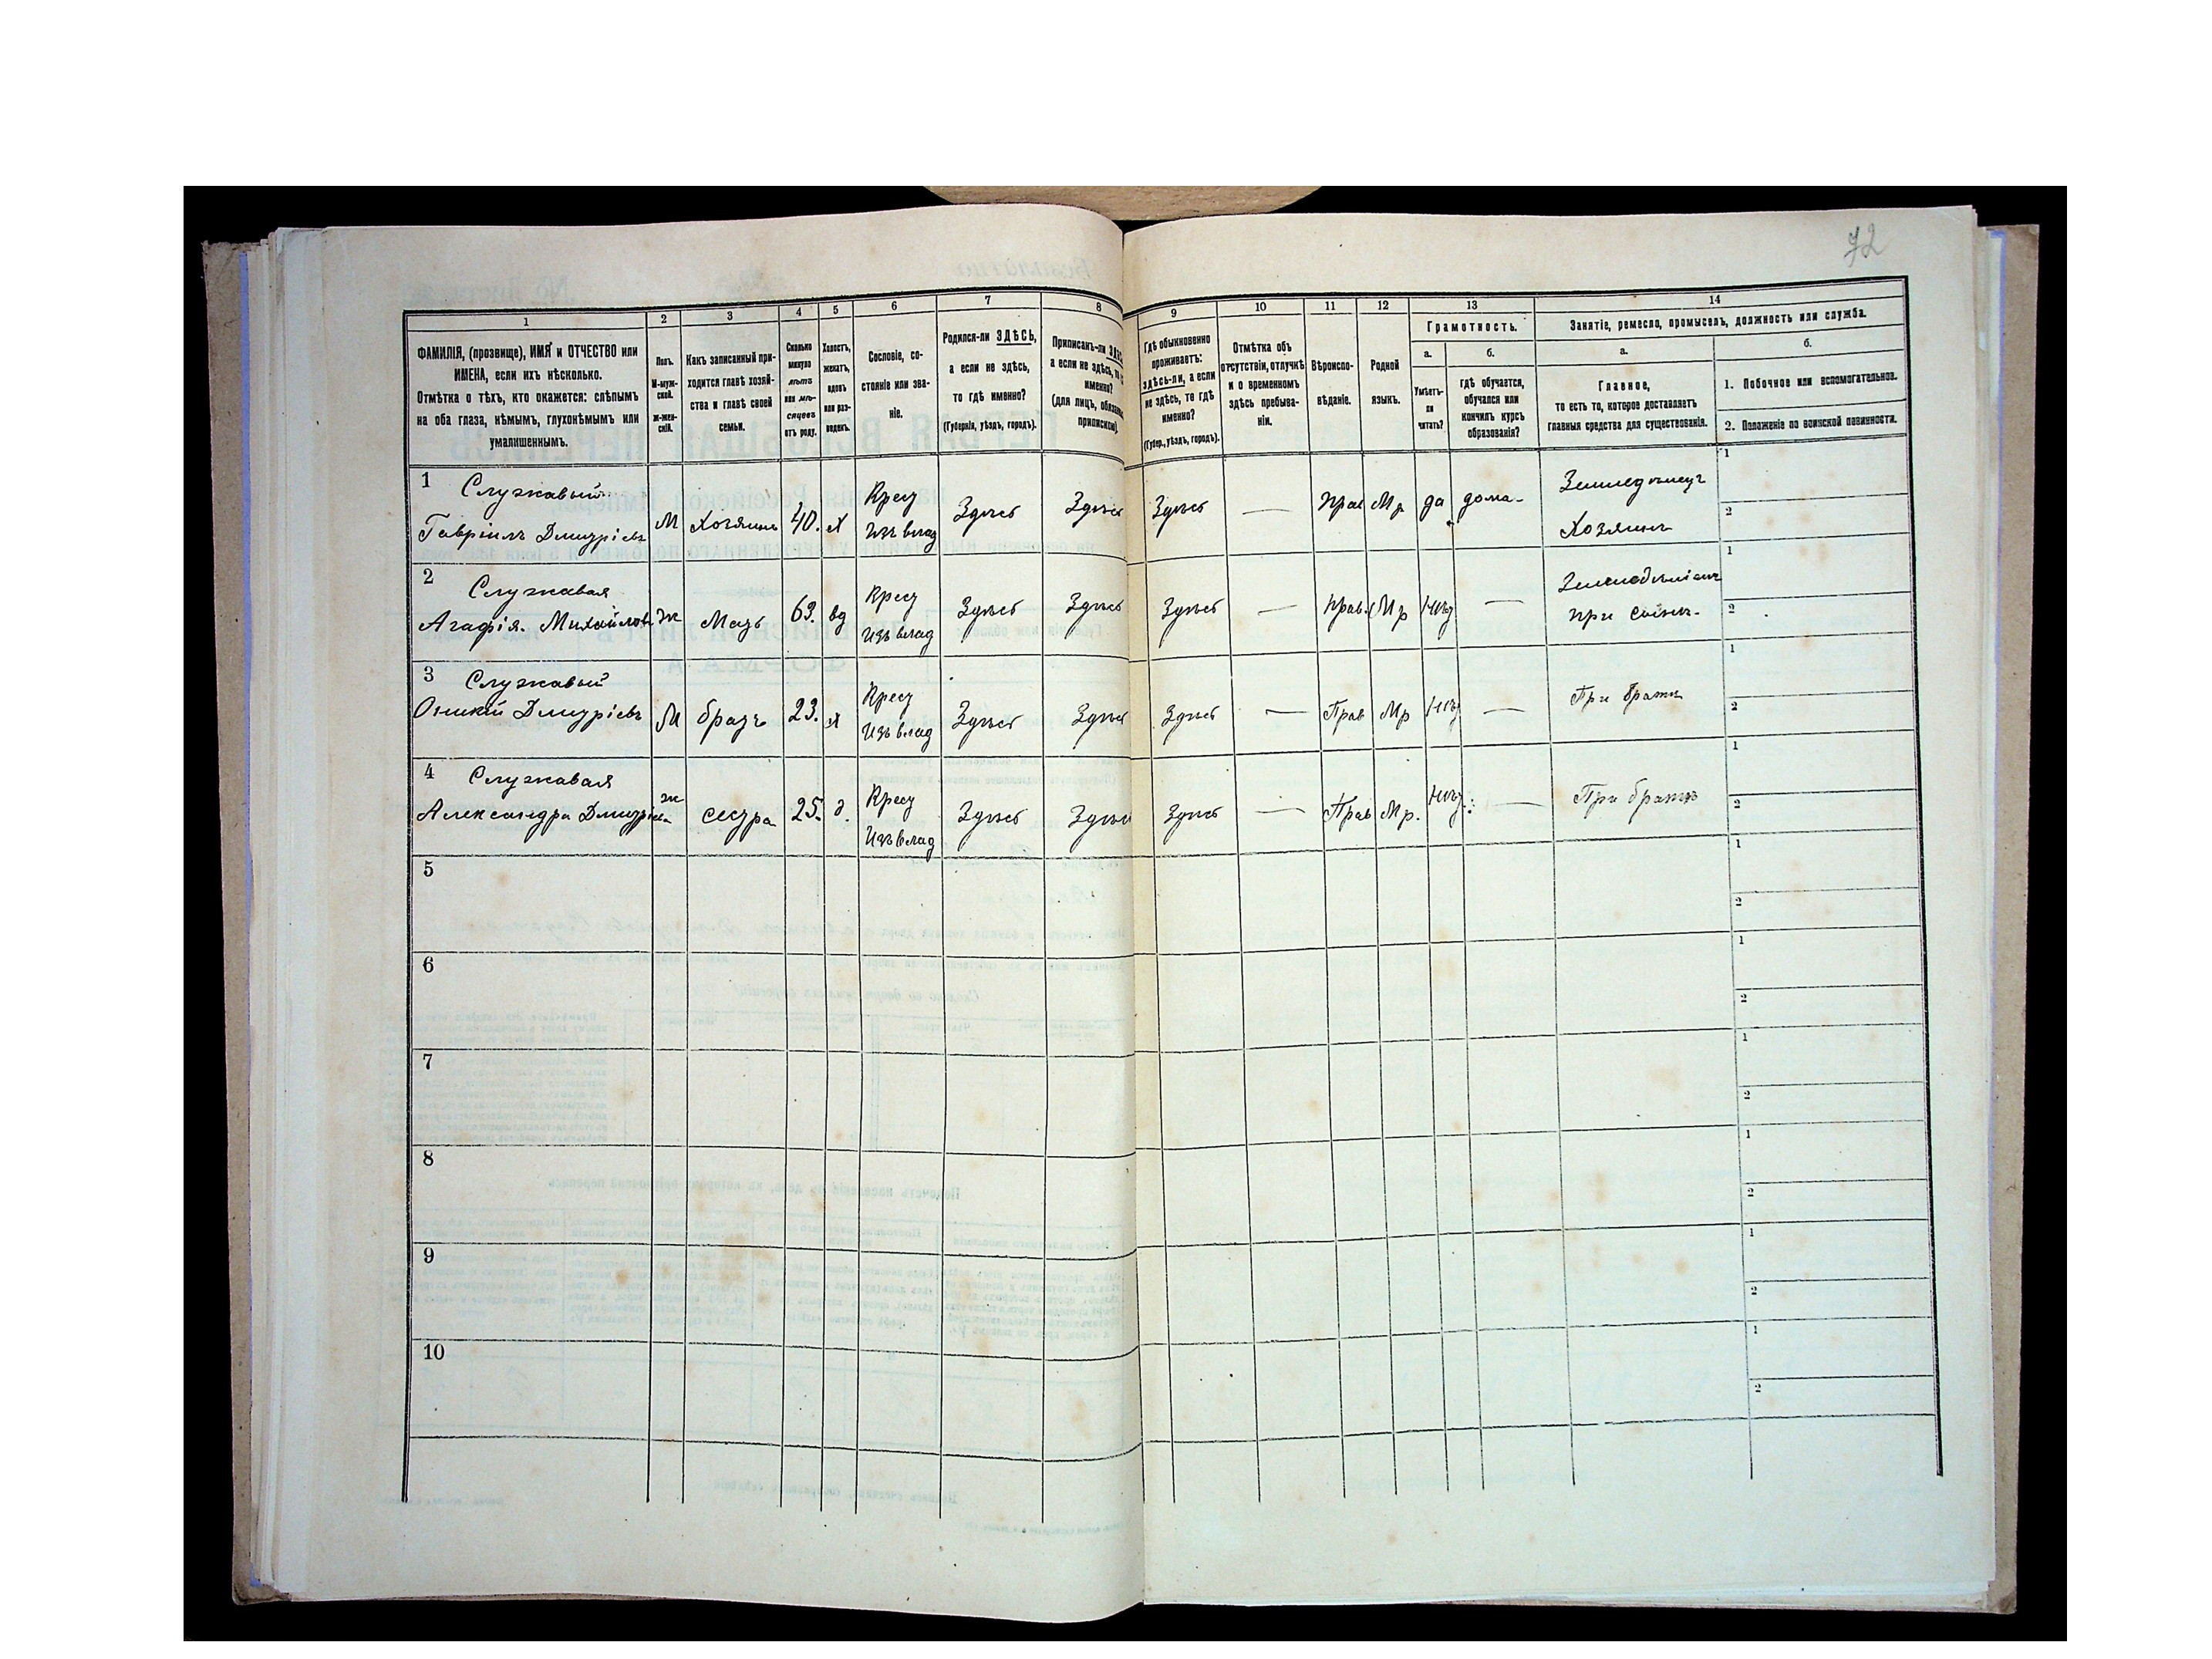 72
1
2
3
4
5
6
7
8
9
10
11
12
13
14
ФАМИЛІЯ, (прозвище), ИМЯ и ОТЧЕСТВО или
ИМЕНА, если ихъ нѣсколько.
Отмѣтка о тѣхъ, кто окажется: слѣпымъ
на оба глаза, нѣмымъ, глухонѣмымъ или
умалишеннымъ.
Полъ.
М-муж-
ской.
ж-жен-
скій.
Какъ записанный при-
ходится главѣ хозяй-
ства и главѣ своей
семьи.
Сколько
минуло
лѣтъ
или мѣ-
сяцевъ
отъ роду.
Холостъ,
женатъ,
вдовъ
или раз-
веденъ.
Сословіе, со-
стояніе или зва-
ніе.
Родился-ли ЗДѢСЬ,
а если не здѣсь,
то гдѣ именно?
(Губернія, уѣздъ, городъ).
Приписанъ-ли
а если не здѣсь,
именно?
(для лицъ,
Гдѣ обыкновенно
проживаетъ:
здѣсь-ли, а если
не здѣсь, то гдѣ
именно?
(Губер., уѣздъ, городъ).
Отмѣтка объ
отсутствіи, отлучкѣ
и о временномъ
здѣсь пребыва-
ніи.
Вѣроиспо-
вѣданіе.
Родной
языкъ.
Грамотность.
а.
Умѣетъ-
ли
читать?
б.
гдѣ обучается,
обучался или
кончилъ курсъ
образованія?
Занятіе, ремесло, промыселъ, должность или служба.
а.
Главное,
то есть то, которое доставляетъ
главныя средства для существованія.
б.
1. Побочное или вспомогательное.
2. Положеніе по воинской повинности.
1 Служавый
Гавріилъ Дмитріевъ М Хозяинъ 40. х Крест Изъ влад Здѣсь Здѣсь Здѣсь — Прав Мр да дома. Земледѣлецъ
Хозяинъ
1
2
2 Служавая
Агафія Михайлов ж Мать 63. вд Крест Изъ влад Здѣсь Здѣсь Здѣсь — Прав. Мр Нѣт — при сынѣ.
1
2
3 Служавый
Дмитріевъ М братъ 23. х Крест Изъ влад Здѣсь Здѣсь Здѣсь — Прав Мр Нѣт — При братѣ
1
2
4 Служавая
Александра ж сестра 25. д. Крест Изъ влад Здѣсь Здѣсь Здѣсь — Прав Мр. Нѣт — При братѣ
1
2
5
1
2
6
1
2
7
1
2
8
1
2
9
1
2
10
1
2